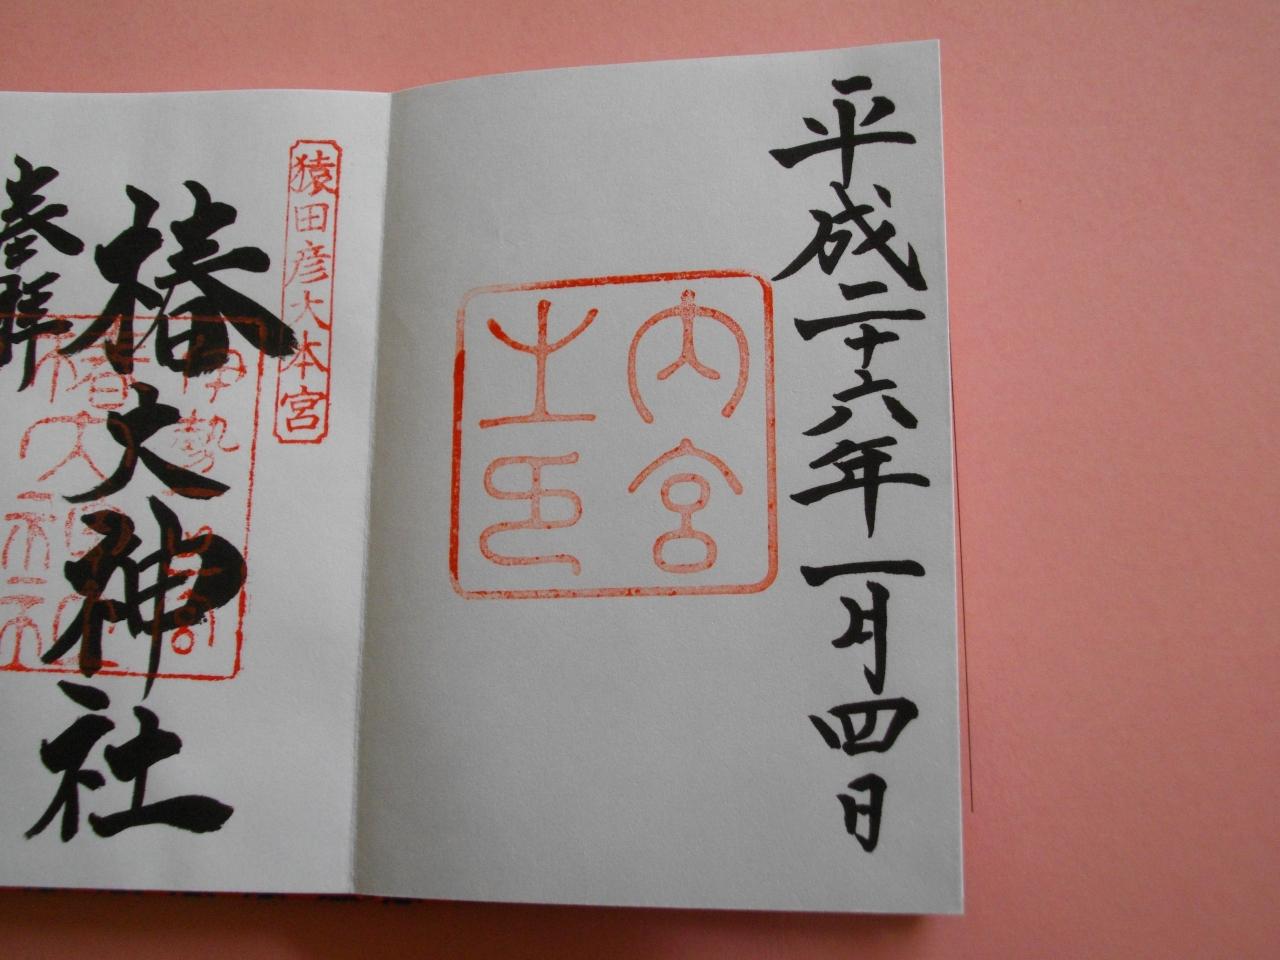 平成二十六年一月四日
内宮
之印
猿田彦大本宮
椿大神社
伊勢
椿大神社
奉拝